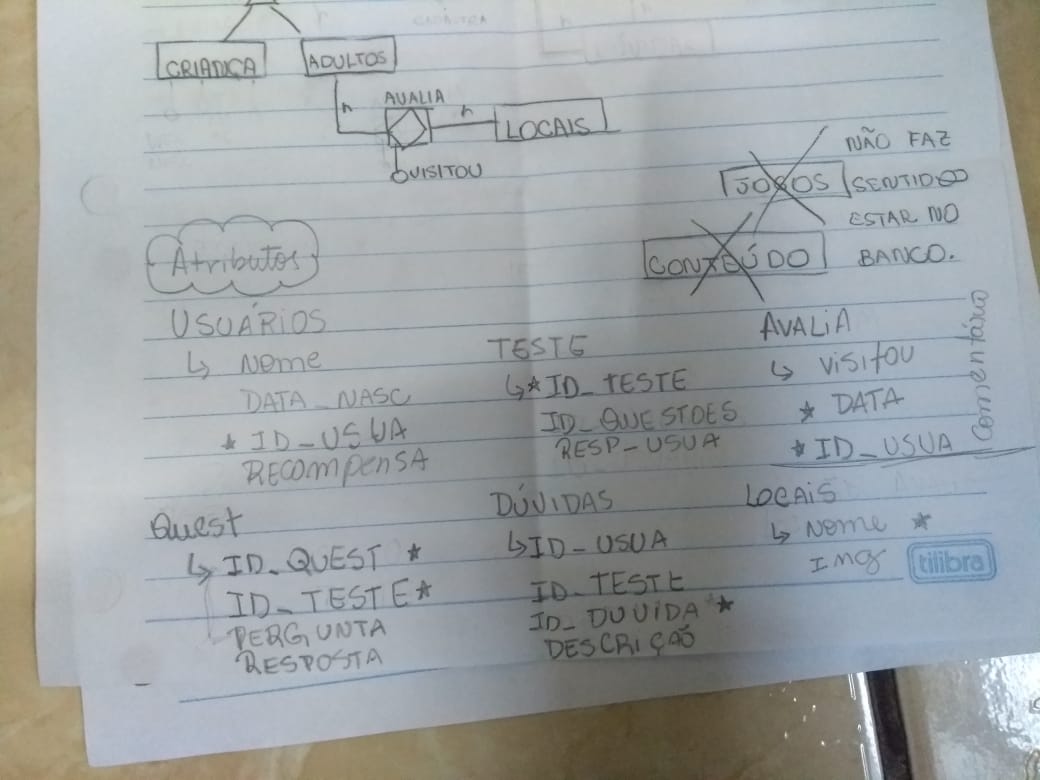 CRIANÇA
ADULTOS
n
AVALIA
n
LOCAIS
VISITOU
JOGOS
NÃO FAZ
SENTIDO
ESTAR NO
BANCO.
CONTEÚDO
Atributos
USUÁRIOS
↳ Nome
DATA_NASC
* ID_USUA
RECOMPENSA
TESTE
↳ * ID_TESTE
ID_QUESTOES
RESP_USUA
AVALIA
↳ VISITOU
* DATA
* ID_USUA
Comentário
Quest
↳ ID_QUEST *
ID_TESTE *
PERGUNTA
RESPOSTA
DÚVIDAS
↳ ID_USUA
ID_TESTE
ID_DUVIDA *
DESCRIÇÃO
LOCAIS
↳ Nome *
Img
tilibra